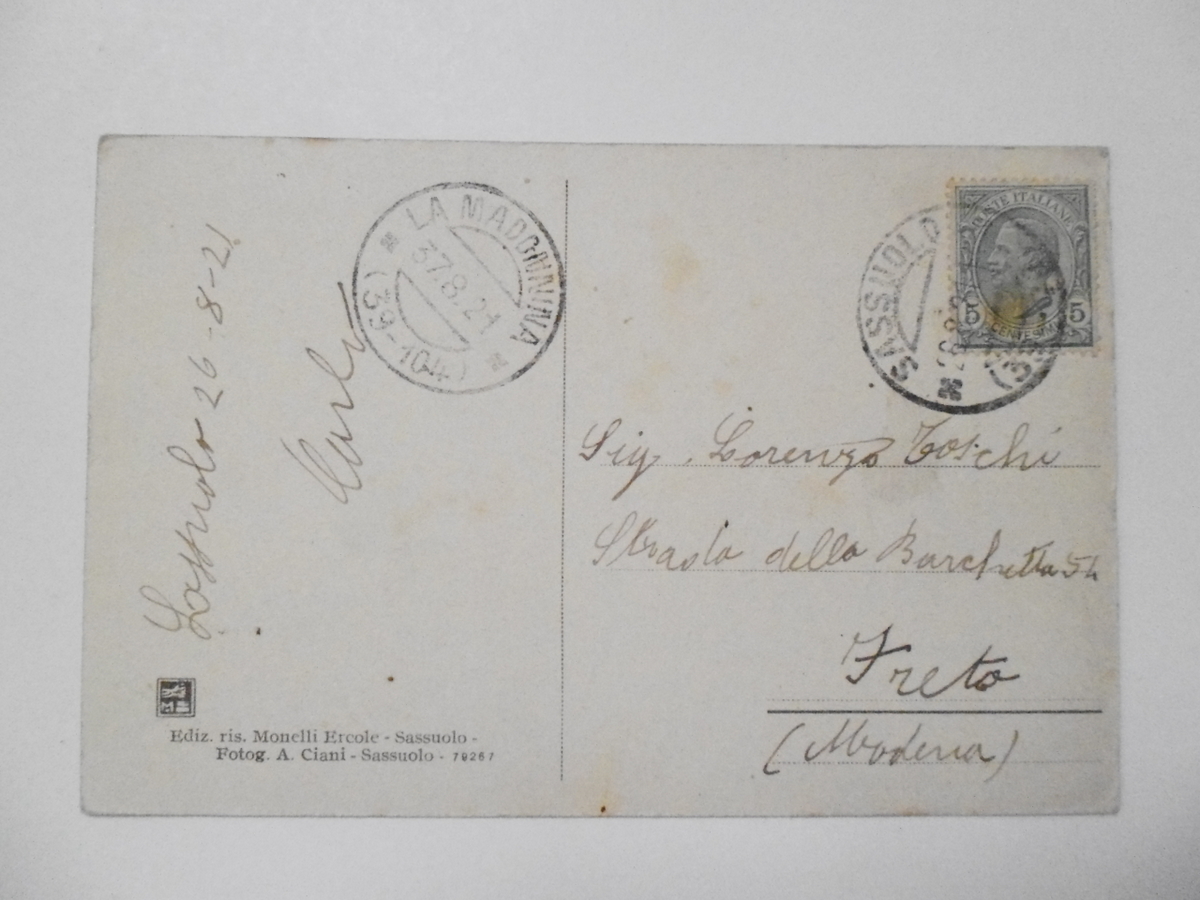 Sassuolo 26-8-21
Carlo
LA MADONNINA
27.8.21
(39-104)
SASSUOLO
26.8.2
POSTE ITALIANE
5 CENTESIMI 5
Sig. Lorenzo Toschi
Strada della Barchetta 54
Freto
(Modena)
Ediz. ris. Monelli Ercole - Sassuolo -
Fotog. A. Ciani - Sassuolo - 79267